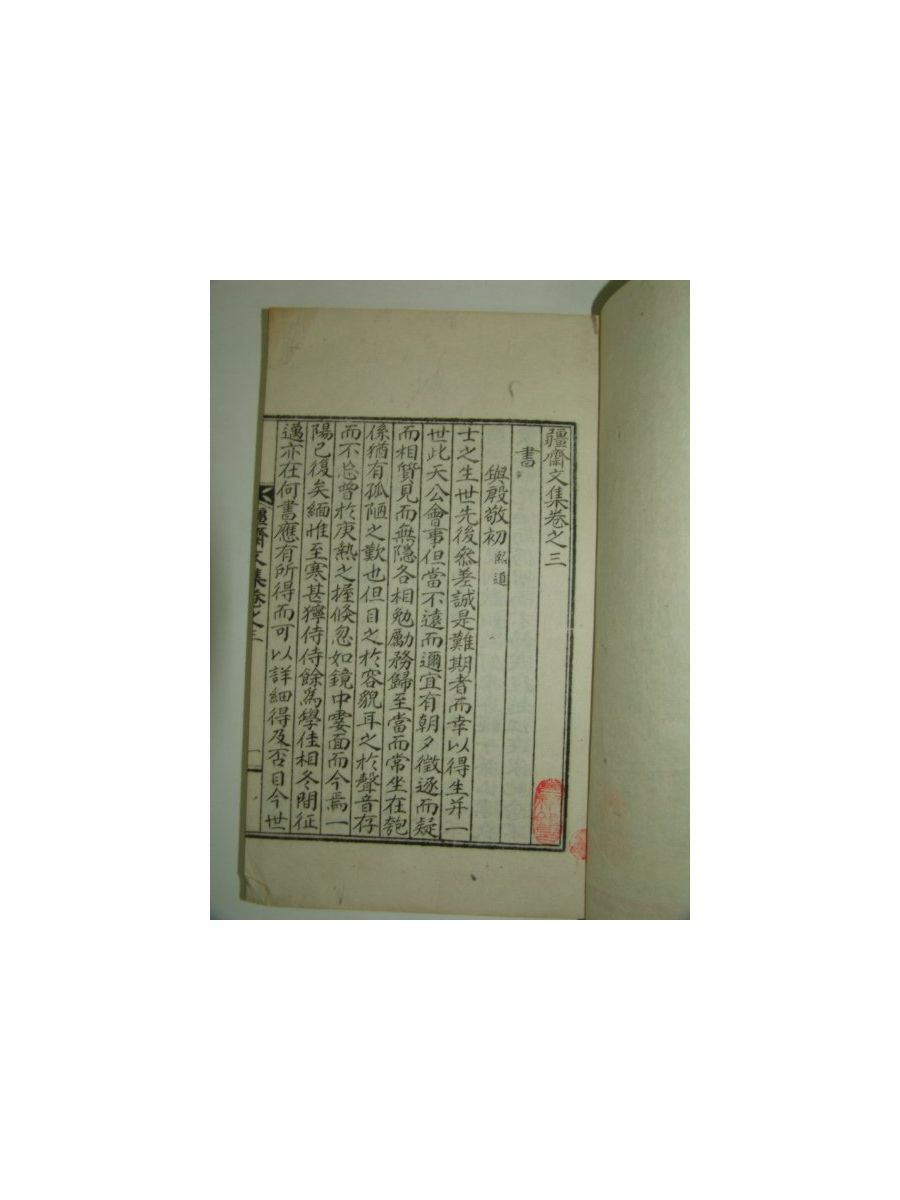 疆齋文集卷之三
書
與殷敬初 熙道
士之生世先後叅差誠是難期者而幸以得生并一
世此天公會事但當不遠而邇宜有朝夕徵逐而疑
而相質見而無隱各相勉勵務歸至當而常坐在匏
係猶有孤陋之歎也但目之於容貌耳之於聲音存
而不忘曾於庚熱之握倏忽如鏡中霎面而今焉一
陽已復矣緬惟至寒甚獰侍侍餘為學佳相冬間征
邁亦在何書應有所得而可以詳細得及否目今世
疆齋文集卷之三
一